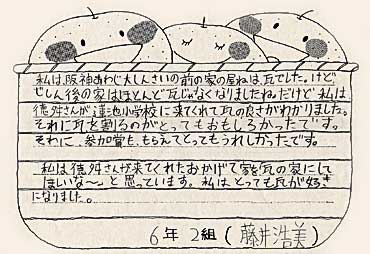 私は、阪神あわじ大しんさいの前の家の屋ねは、瓦でした。けど
じしん後の家はほとんど瓦じゃなくなりましたね。だけど私は
徳舛さんが蓮池小学校に来てくれて瓦の良さがわかりました。
それに瓦を割るのがとってもおもしろかったです。
それに、参加賞も、もらえてとってもうれしかったです。
私は徳舛さんが来てくれたおかげで家を瓦の家にして
ほしいな〜。と思っています。私はとっても瓦が好き
になりました。
6年 2組 (藤井浩美)